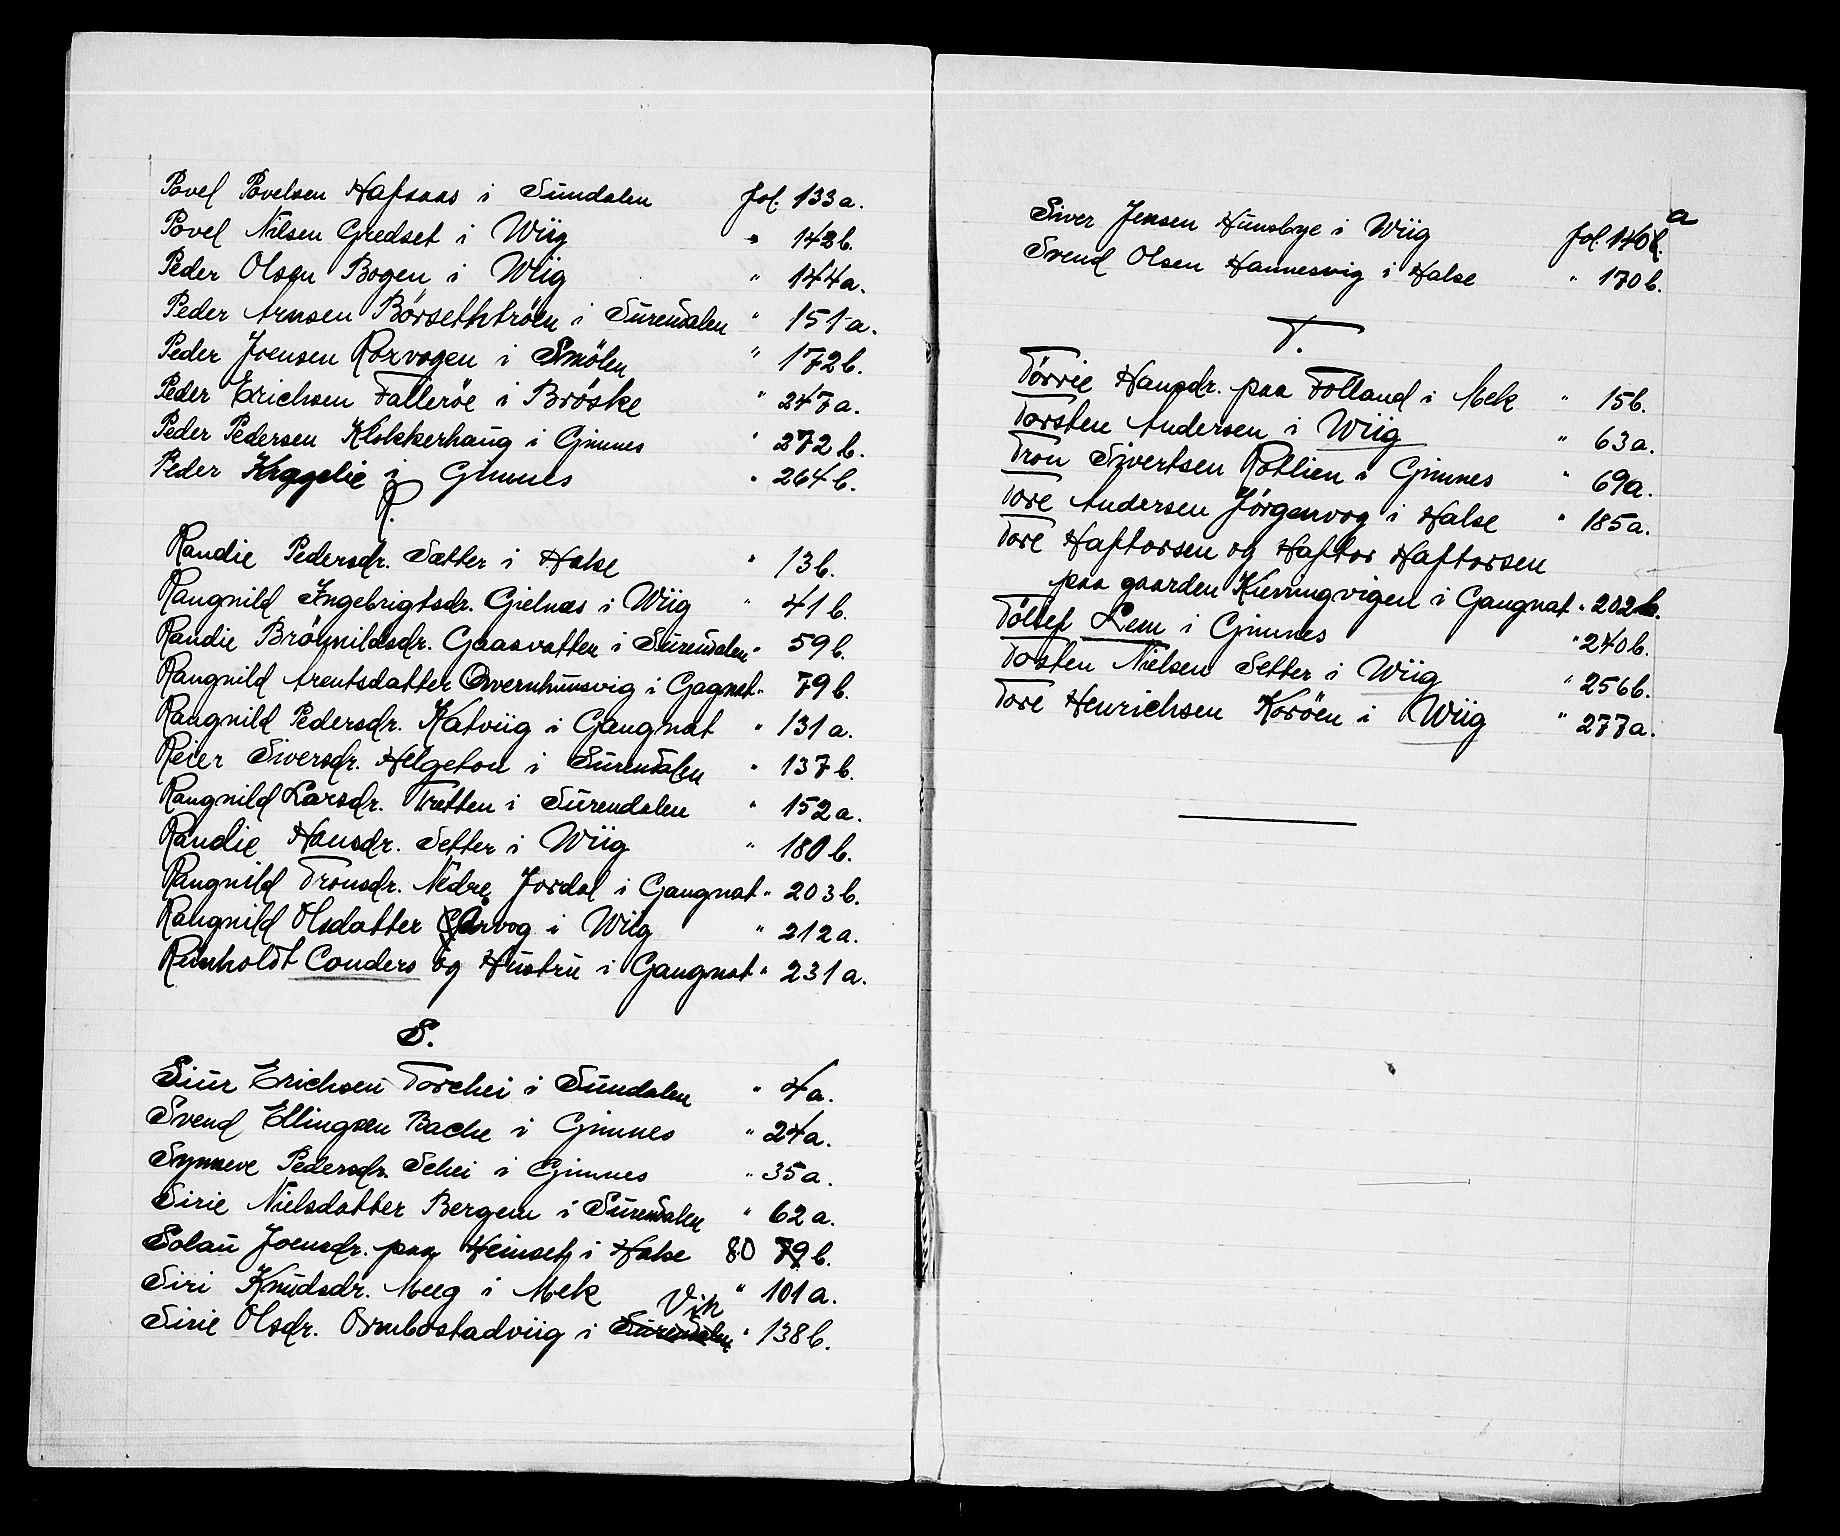 Povel Povelsen Hafsaas i Sundalen fol. 133a.
Povel Nilsen Gredset i Wiig " 142b.
Peder Olsen Bogen i Wiig " 144a.
Peder Arnsen Börsethtröen i Surendalen " 151a.
Peder Joensen Rorvogen i Smölen " 172b.
Peder Erichsen Falleröe i Bröske " 247a.
Peder Pedersen Klokkerhaug i Gimnes " 272b.
Peder i Gimnes " 264b.
R.
Randie Pedersdr. Sætter i Halse " 13b.
Rangnild Ingebrigtsdr. Gielnæs i Wiig " 41b.
Randie Gaasvatten i Surendalen " 59b.
Rangnild Arentsdatter Qvernhunsvig i Gagnat " 79b.
Rangnild Pedersdr. Katviig i Gangnat " 131a.
Reier Siversdr. Helgeton i Surendalen " 137b.
Rangnild Larsdr. Tretten i Surendalen " 152a.
Randie Hansdr. Setter i Wiig " 180b.
Rangnild Tronsdr. Nedre Jordal i Gangnat " 203b.
Rangnild Olsdatter Årvog i Wiig " 212a.
Reinholdt Conders og Hustru i Gangnat " 231a.
S.
Siur Erichsen Torchei i Sundalen " 4a.
Svend Ellingsen Bache i Gimnes " 24a.
Synneve Pedersdr. Schei i Gimnes " 35a.
Sirie Nielsdatter Bergem i Surendalen " 62a.
Solau Joensdr. paa Heinset i Halse 80 79b.
Siri Knudsdr. Meeg i Mek " 101a.
Vik
Sirie Olsdr. Ormbostadviig i Surendalen " 138b.
a
Siver Jensen Hunsbye i Wiig fol. 140b.
Svend Olsen Hannesvig i Halse " 170b.
T.
Törrie Hansdr. paa Folland i Mek " 15b.
Torsten Andersen i Wiig " 63a.
Tron Sivertsen Rotlien i Gimnes " 69a.
Tore Andersen Jörgenvog i Halse " 185a.
Tore Haftorsen og Haftor Haftorsen
paa gaarden Kierringvigen i Gangnat " 202b.
Töllef Lem i Gimnes " 240b.
Tosten Nielsen Setter i Wiig " 256b.
Tore Henrichsen Koröen i Wiig " 277a.